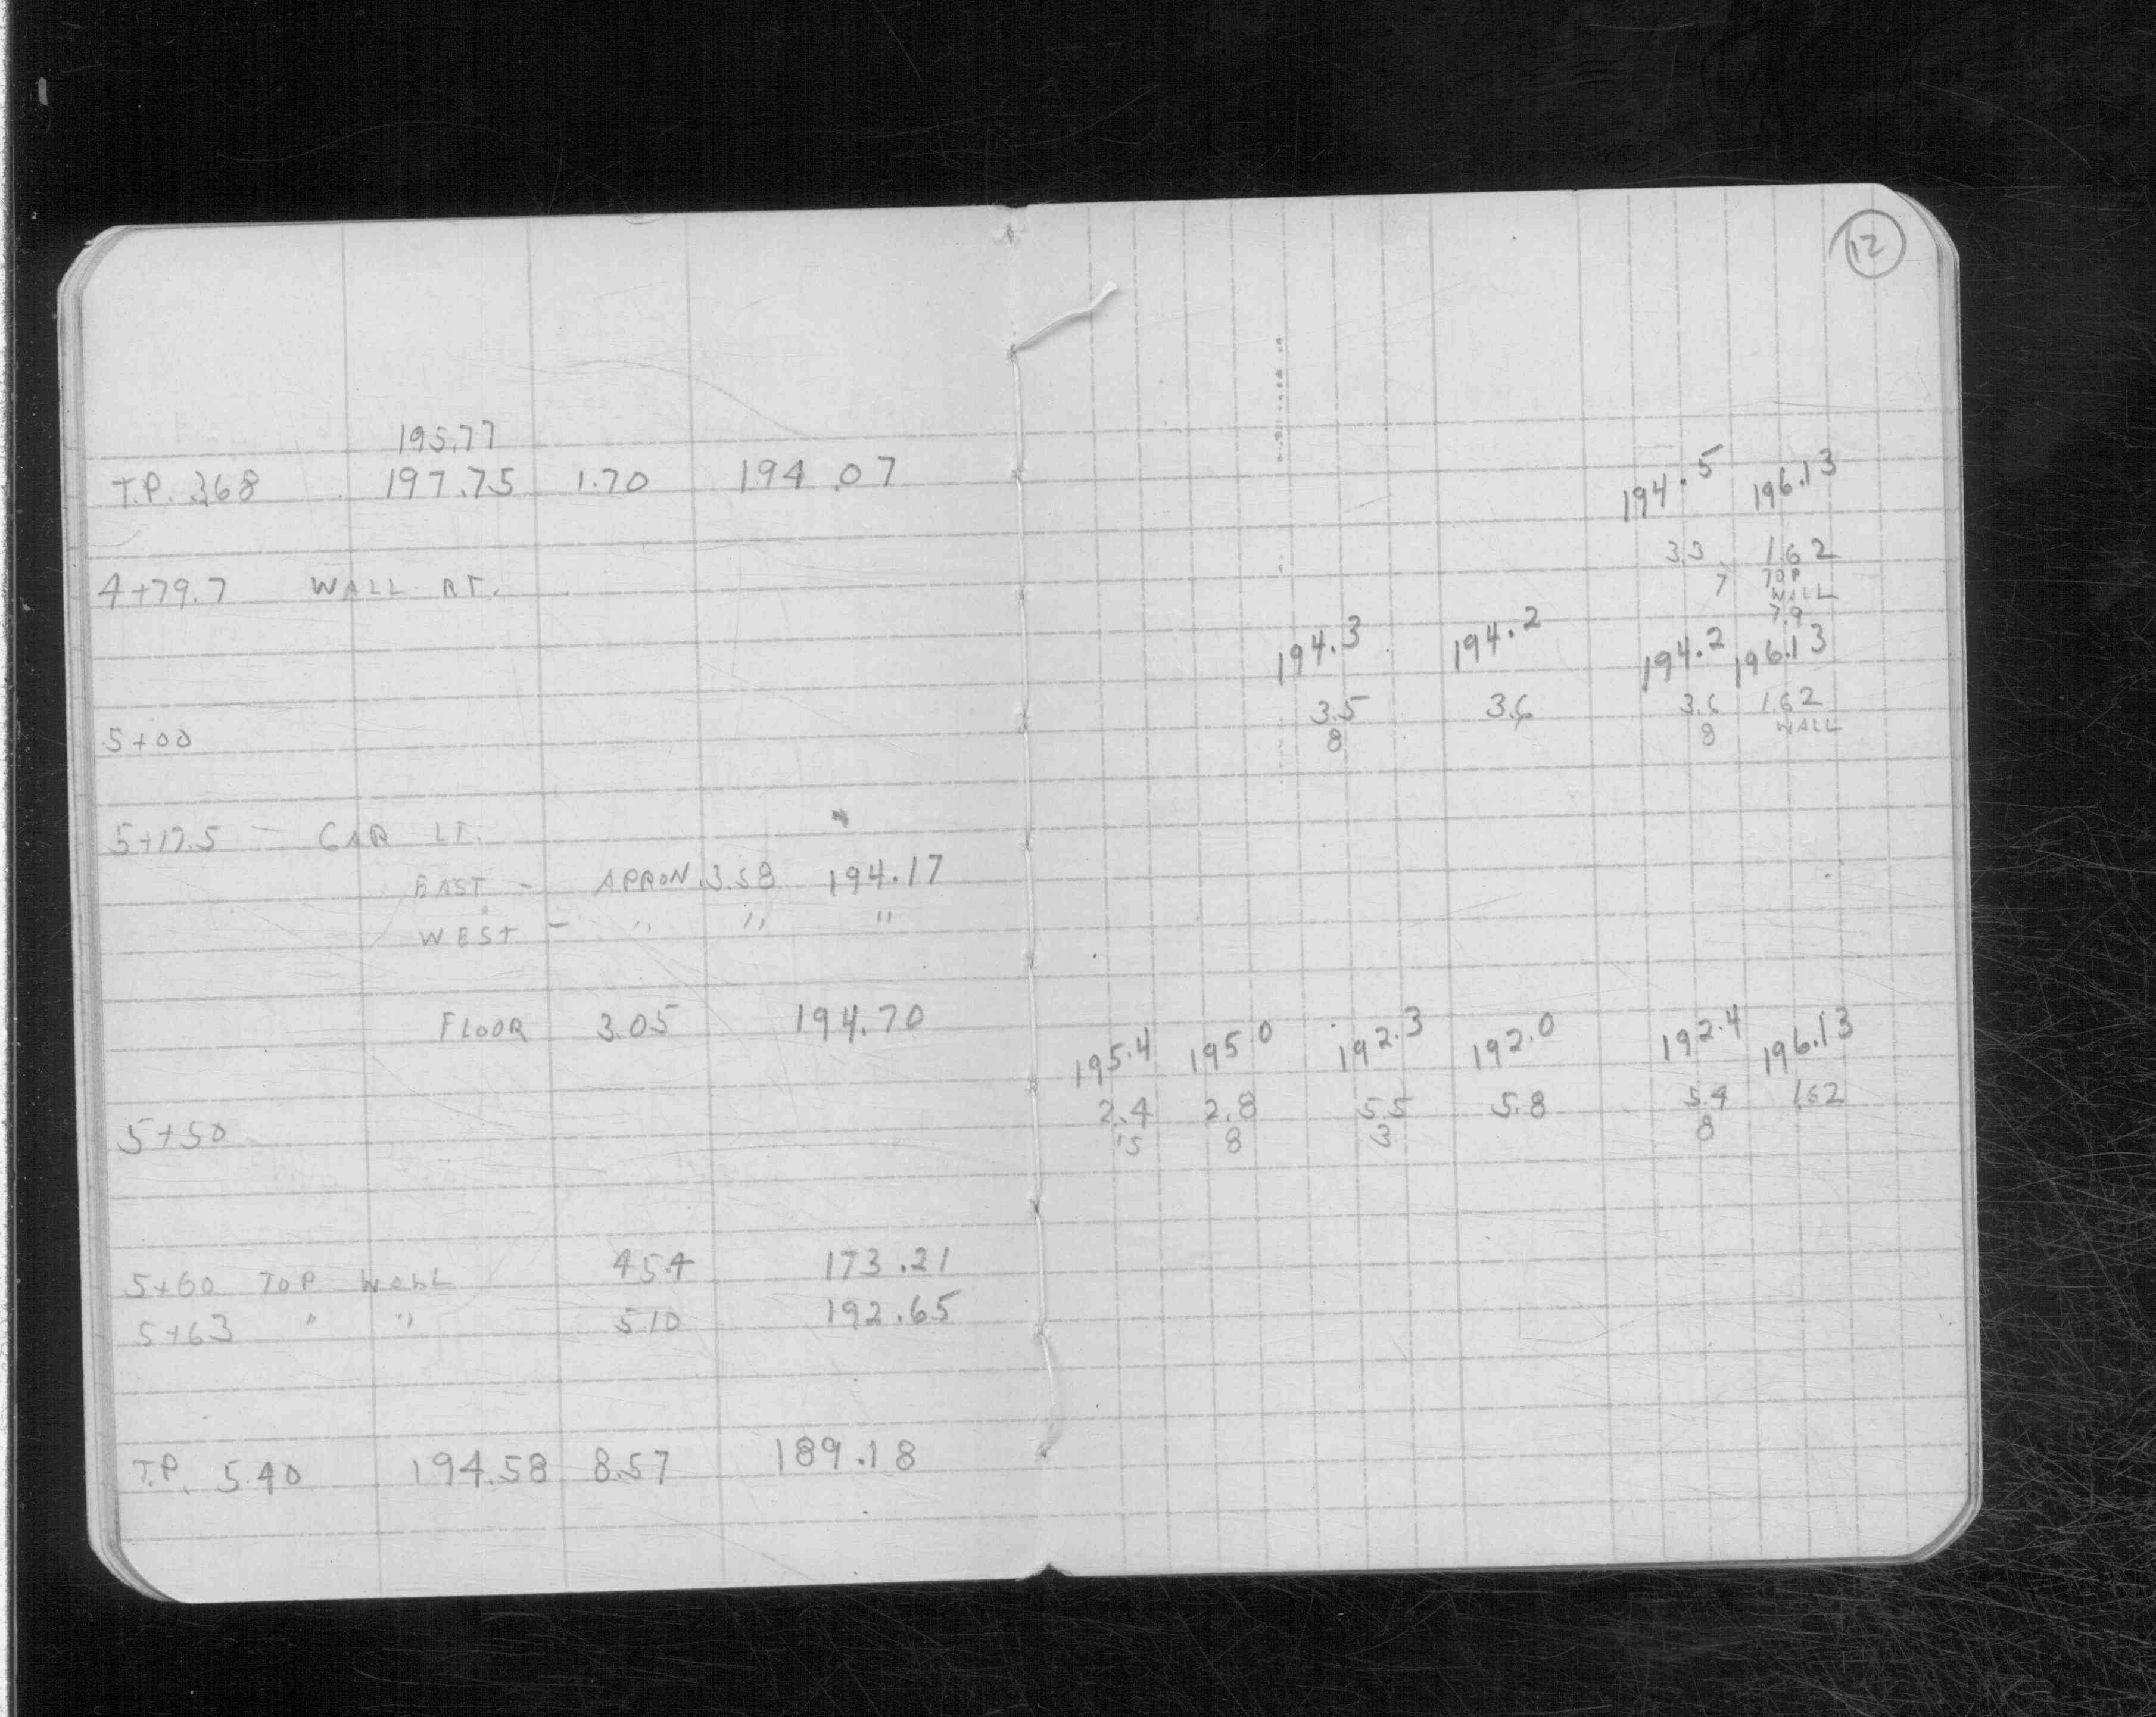 12
195.77
T.P. 3.68 197.75 1.70 194.07
194.5 196.13
3.3 1.62
4+79.7 WALL RT. 7 TOP
WALL
7.9
194.3 194.2 194.2 196.13
3.5 3.6 3.6 1.62
5+00 8 8 WALL
5+17.5 — GAR LT.
EAST - APRON 3.58 194.17
WEST - " " "
FLOOR 3.05 194.70
195.4 195.0 192.3 192.0 192.4 196.13
2.4 2.8 5.5 5.8 5.4 1.62
5+50 15 8 3 8
5+60 TOP WALL 4.54 173.21
5+63 " " 5.10 192.65
T.P. 5.40 194.58 8.57 189.18